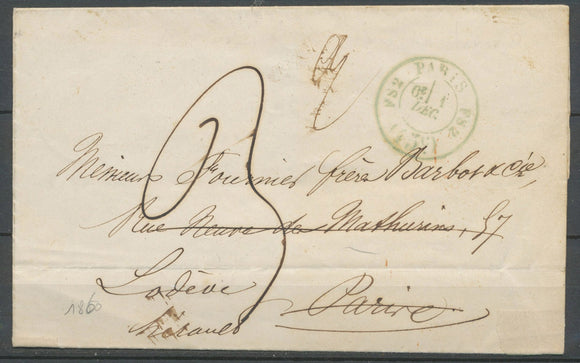 PARIS
FS2 FS2
1
DEC
60
3
Messieurs Fournier frères Barbot & Cie,
Rue Neuve des Mathurins, 57
Lodève
Paris
Hérault
1860